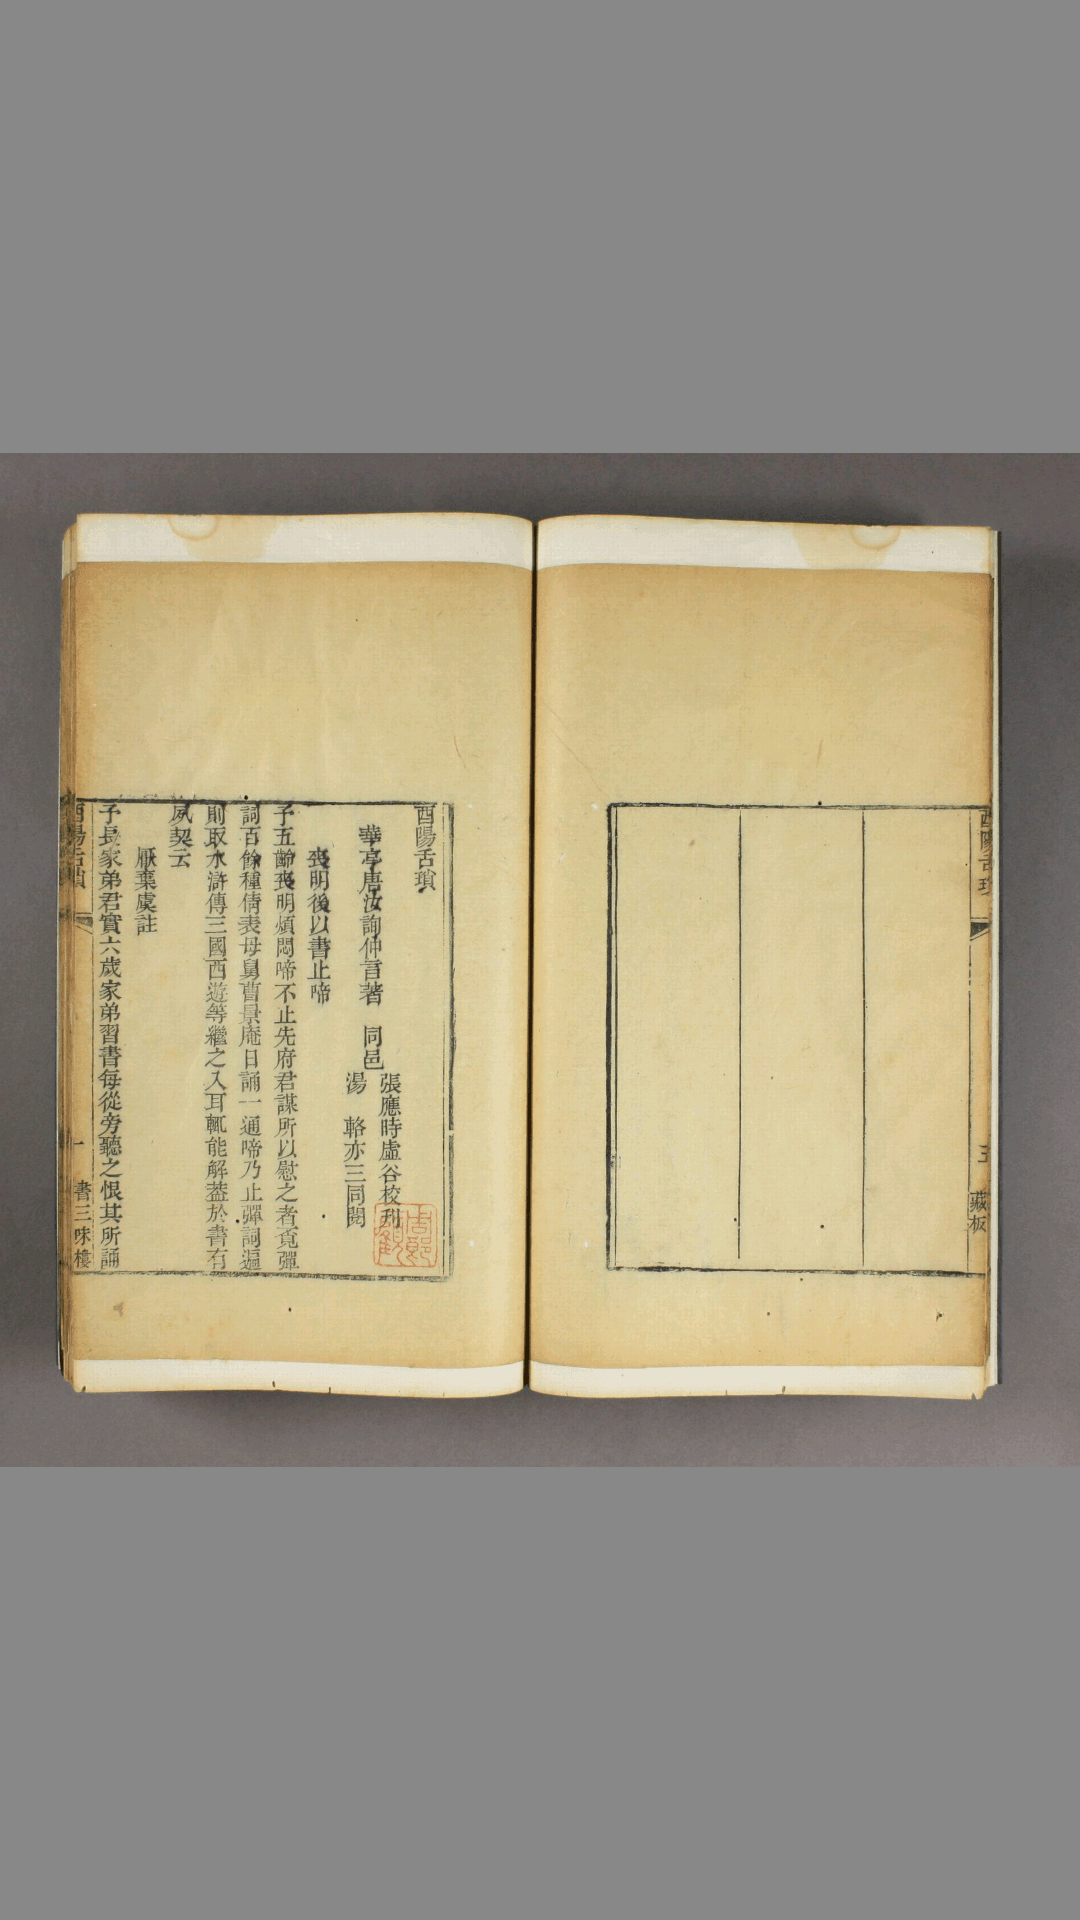 酉陽舌瑣
五
藏板
酉陽舌瑣
華亭唐汝詢仲言著　同邑
張應時虛谷校刋
湯　輅亦三同閱
喪明後以書止啼
予五齡喪明煩悶啼不止先府君謀所以慰之者覔彈
詞百餘種倩表母舅曹景庵日誦一通啼乃止彈詞遍
則取水滸傳三國西遊等繼之入耳輒能解葢於書有
夙契云
厭棄虞註
予長家弟君實六歲家弟習書每從旁聽之恨其所誦
酉陽舌瑣
一
書三味樓